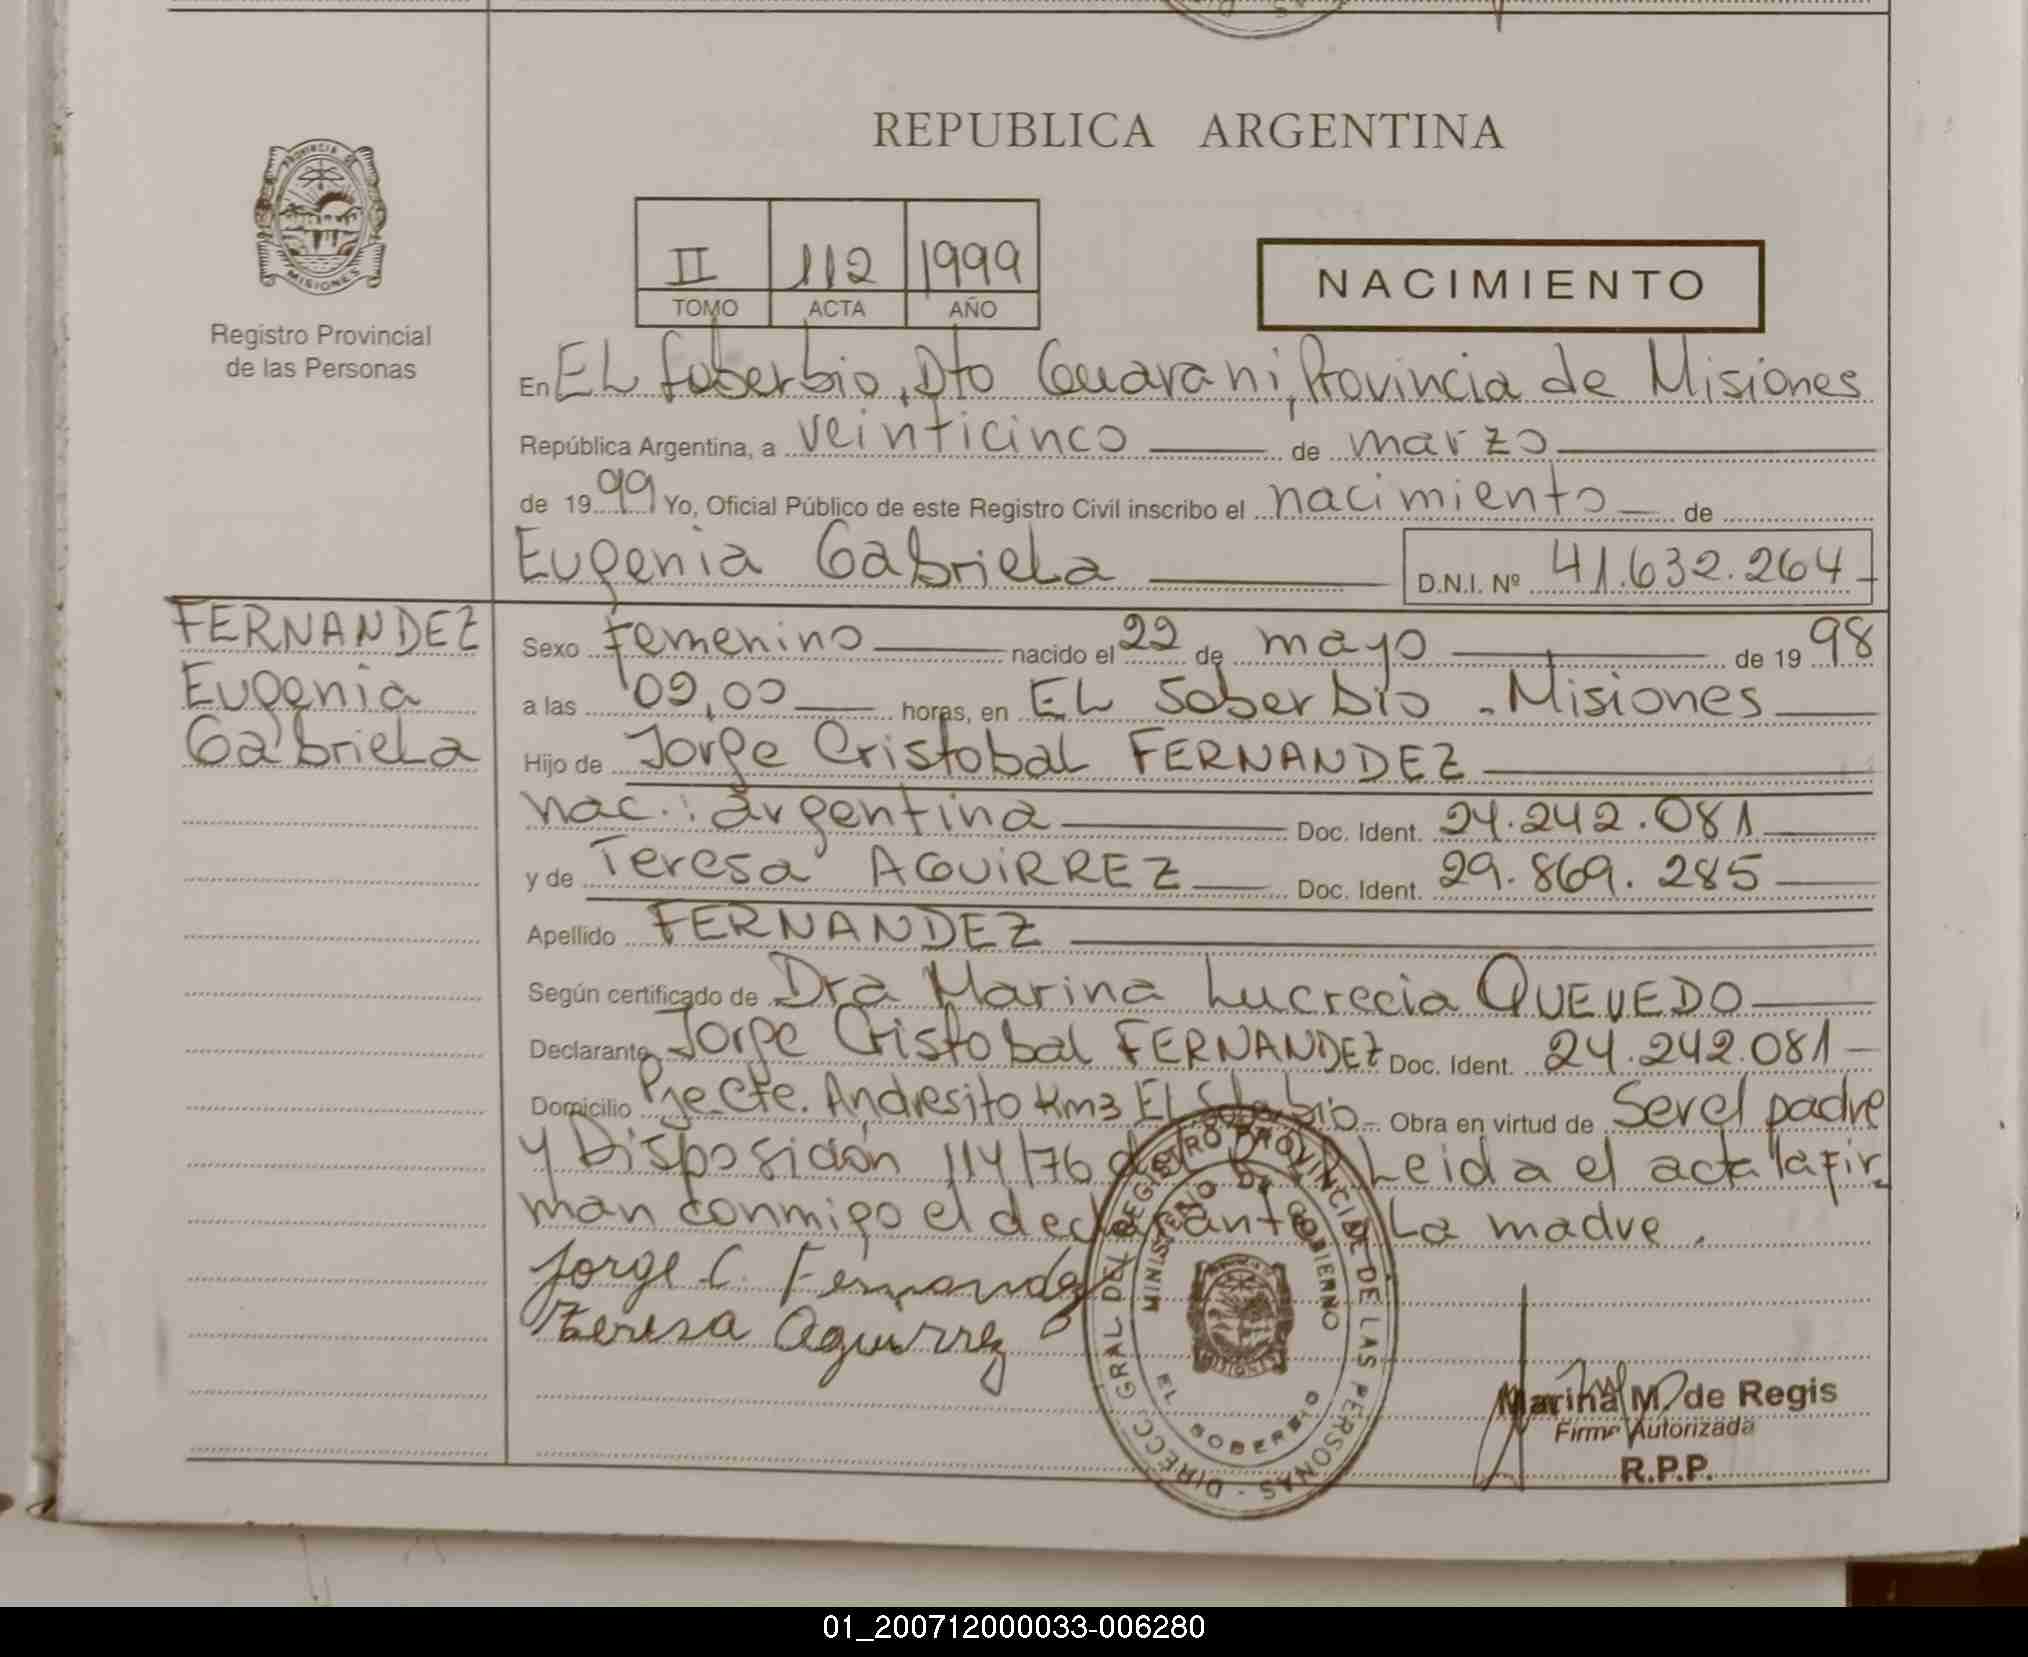 REPUBLICA ARGENTINA
PROVINCIA DE MISIONES
Registro Provincial
de las Personas
II 112 1999
TOMO ACTA AÑO
NACIMIENTO
En EL Soberbio, Dto Guarani, Provincia de Misiones
República Argentina, a veinticinco de marzo
de 1999 Yo, Oficial Público de este Registro Civil inscribo el nacimiento de
Eugenia Gabriela D.N.I. Nº 41.632.264
FERNANDEZ
Eugenia
Gabriela
Sexo femenino nacido el 22 de mayo de 1998
a las 09,00 horas, en EL Soberbio - Misiones
Hijo de Jorge Cristobal FERNANDEZ
nac.: argentina Doc. Ident. 24.242.081
y de Teresa AGUIRREZ Doc. Ident. 29.869.285
Apellido FERNANDEZ
Según certificado de Dra Marina Lucrecia QUEVEDO
Declarante Jorge Cristobal FERNANDEZ Doc. Ident. 24.242.081
Domicilio Pje Cte. Andresito Km3 EL Soberbio Obra en virtud de Ser el padre
y Disposición 114/76 del Leida el acta la fir-
man conmigo el declarante La madre.
Jorge C. Fernandez
Teresa Aguirrez
DIRECC. GRAL DEL REGISTRO PROVINCIAL DE LAS PERSONAS -
MINISTERIO DE GOBIERNO
MISIONES
EL SOBERBIO
Marina M. de Regis
Firma Autorizada
R.P.P.
01_200712000033-006280